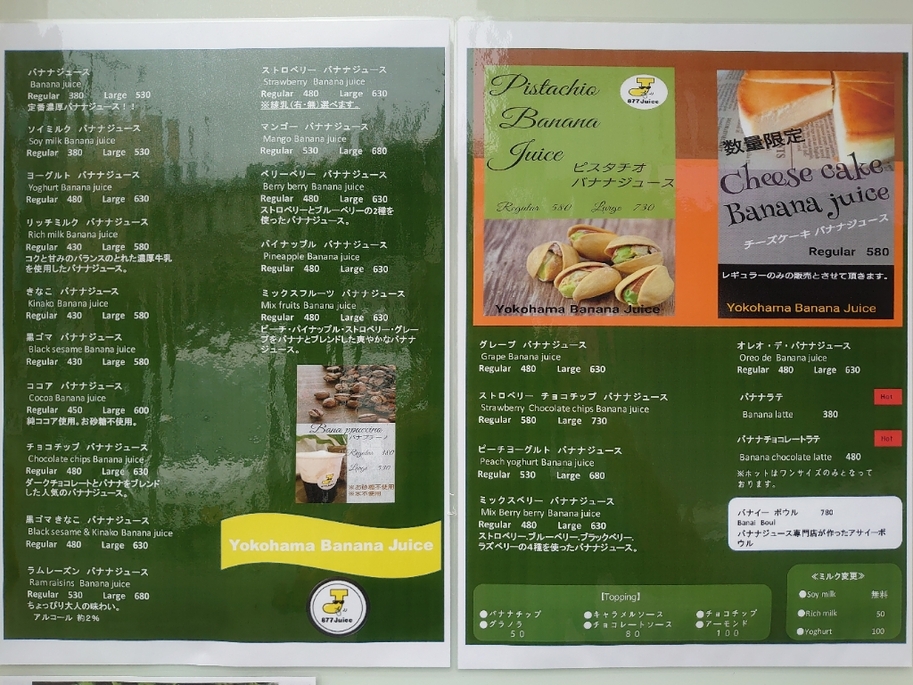 バナナジュース
Banana juice
Regular 380 Large 530
定番濃厚バナナジュース!!
ソイミルク バナナジュース
Soy milk Banana juice
Regular 380 Large 530
ヨーグルト バナナジュース
Yoghurt Banana juice
Regular 480 Large 630
リッチミルク バナナジュース
Rich milk Banana juice
Regular 430 Large 580
コクと甘みのバランスのとれた濃厚牛乳
を使用したバナナジュース。
きなこ バナナジュース
Kinako Banana juice
Regular 430 Large 580
黒ゴマ バナナジュース
Black sesame Banana juice
Regular 430 Large 580
ココア バナナジュース
Cocoa Banana juice
Regular 450 Large 600
純ココア使用。お砂糖不使用。
チョコチップ バナナジュース
Chocolate chips Banana juice
Regular 480 Large 630
ダークチョコレートとバナナをブレンド
した人気のバナナジュース。
黒ゴマ きなこ バナナジュース
Black sesame & Kinako Banana juice
Regular 480 Large 630
ラムレーズン バナナジュース
Ram raisins Banana juice
Regular 530 Large 680
ちょっぴり大人の味わい。
アルコール 約2%
ストロベリー バナナジュース
Strawberry Banana juice
Regular 480 Large 630
※練乳(有・無)選べます。
マンゴー バナナジュース
Mango Banana juice
Regular 530 Large 680
ベリーベリー バナナジュース
Berry berry Banana juice
Regular 480 Large 630
ストロベリーとブルーベリーの2種を
使ったバナナジュース。
パイナップル バナナジュース
Pineapple Banana juice
Regular 480 Large 630
ミックスフルーツ バナナジュース
Mix fruits Banana juice
Regular 480 Large 630
ピーチ・パイナップル・ストロベリー・グレー
プをバナナとブレンドした爽やかなバナナ
ジュース。
Bana ppuccino
バナプチーノ
Regular 380
Large 530
※お砂糖不使用
※氷不使用
Yokohama Banana Juice
877Juice
Pistachio
Banana
Juice
877Juice
ピスタチオ
バナナジュース
Regular 580 Large 730
Yokohama Banana Juice
数量限定
Cheese cake
Banana juice
チーズケーキ バナナジュース
Regular 580
レギュラーのみの販売とさせて頂きます。
Yokohama Banana Juice
グレープ バナナジュース
Grape Banana juice
Regular 480 Large 630
ストロベリー チョコチップ バナナジュース
Strawberry Chocolate chips Banana juice
Regular 580 Large 730
ピーチヨーグルト バナナジュース
Peach yoghurt Banana juice
Regular 530 Large 680
ミックスベリー バナナジュース
Mix Berry berry Banana juice
Regular 480 Large 630
ストロベリー.ブルーベリー.ブラックベリー.
ラズベリーの4種を使ったバナナジュース。
オレオ・デ・バナナジュース
Oreo de Banana juice
Regular 480 Large 630
バナナラテ Hot
Banana latte 380
バナナチョコレートラテ Hot
Banana chocolate latte 480
※ホットはワンサイズのみとなって
おります。
バナイー ボウル 780
Banai Boul
バナナジュース専門店が作ったアサイーボ
ウル
【Topping】
●バナナチップ ●キャラメルソース ●チョコチップ
●グラノラ ●チョコレートソース ●アーモンド
50 80 100
≪ミルク変更≫
●Soy milk 無料
●Rich milk 50
●Yoghurt 100